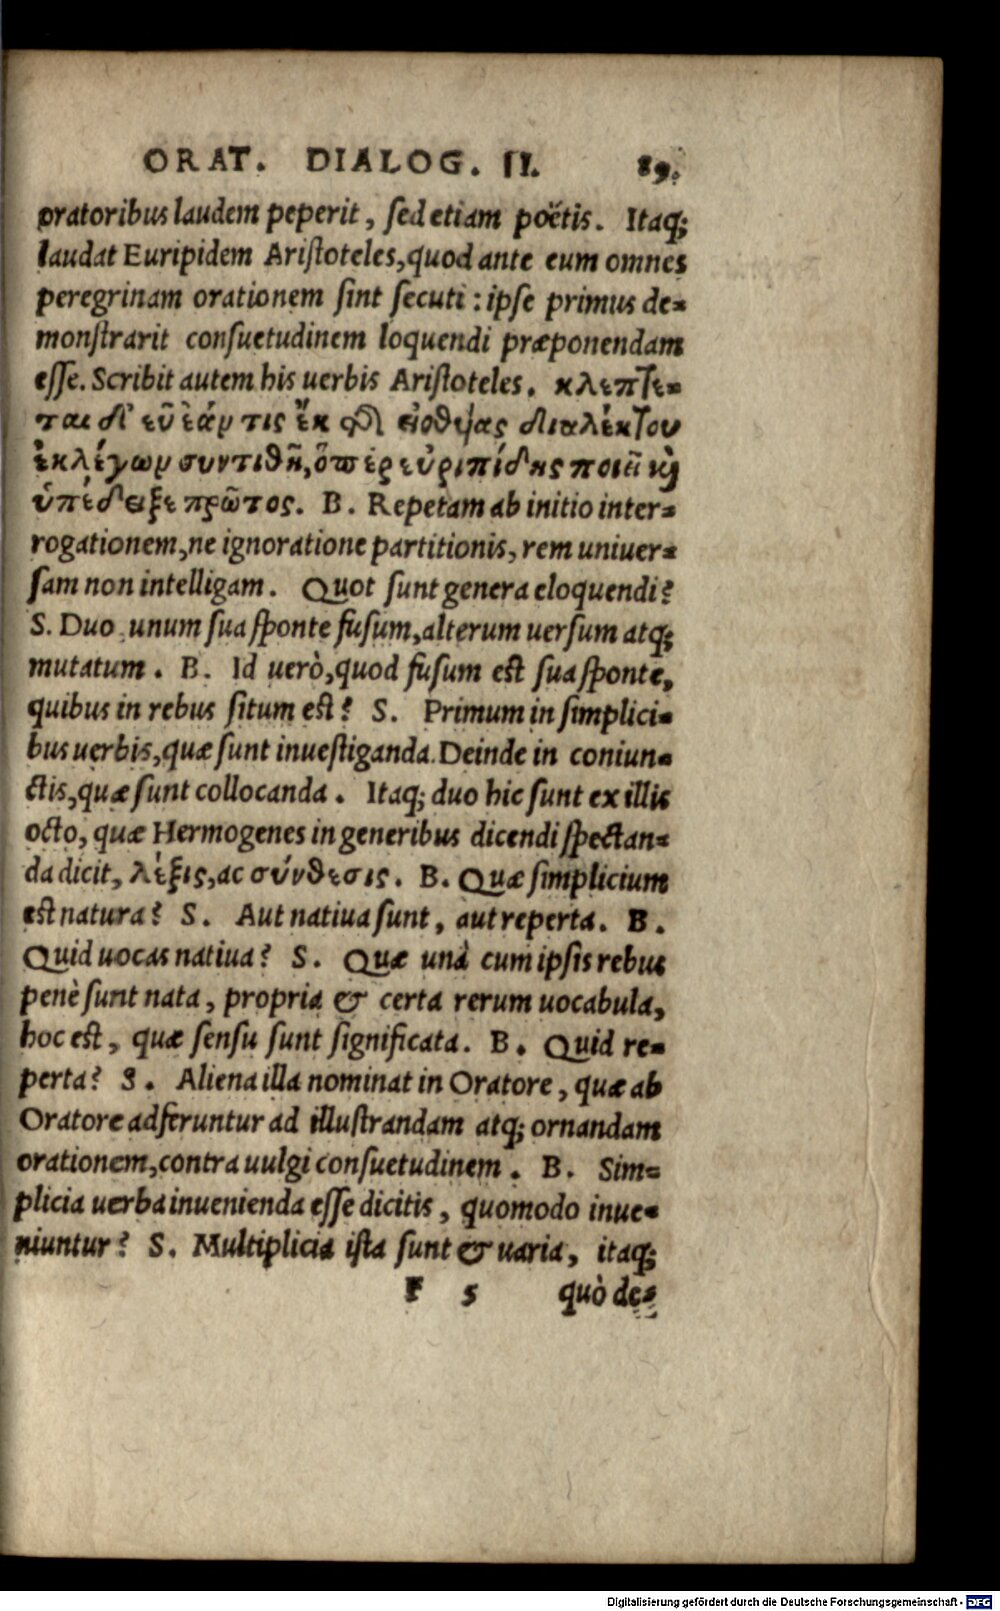 ORAT. DIALOG. II. 89.
oratoribus laudem peperit, sed etiam poëtis. Itaq;
laudat Euripidem Aristoteles, quod ante eum omnes
peregrinam orationem sint secuti: ipse primus de-
monstrarit consuetudinem loquendi præponendam
esse. Scribit autem his uerbis Aristoteles. κλέπτε-
ται δ' εὖ ἐάν τις ἐκ τῆς εἰωθυίας διαλέκτου
ἐκλέγων συντιθῇ, ὅπερ εὐριπίδης ποιεῖ καὶ
ὑπέδειξε πρῶτος. B. Repetam ab initio inter-
rogationem, ne ignoratione partitionis, rem uniuer-
sam non intelligam. Quot sunt genera eloquendi?
S. Duo, unum sua sponte fusum, alterum uersum atq;
mutatum. B. Id uerò, quod fusum est sua sponte,
quibus in rebus situm est? S. Primum in simplici-
bus uerbis, quæ sunt inuestiganda. Deinde in coniun-
ctis, quæ sunt collocanda. Itaq; duo hic sunt ex illis
octo, quæ Hermogenes in generibus dicendi spectan-
da dicit, λέξις, ac σύνθεσις. B. Quæ simplicium
est natura? S. Aut natiua sunt, aut reperta. B.
Quid uocas natiua? S. Quæ unà cum ipsis rebus
penè sunt nata, propria & certa rerum uocabula,
hoc est, quæ sensu sunt significata. B. Quid re-
perta? S. Aliena illa nominat in Oratore, quæ ab
Oratore adferuntur ad illustrandam atq; ornandam
orationem, contra uulgi consuetudinem. B. Sim-
plicia uerba inuenienda esse dicitis, quomodo inue-
niuntur? S. Multiplicia ista sunt & uaria, itaq;
F 5 quò de-
Digitalisierung gefördert durch die Deutsche Forschungsgemeinschaft - DFG